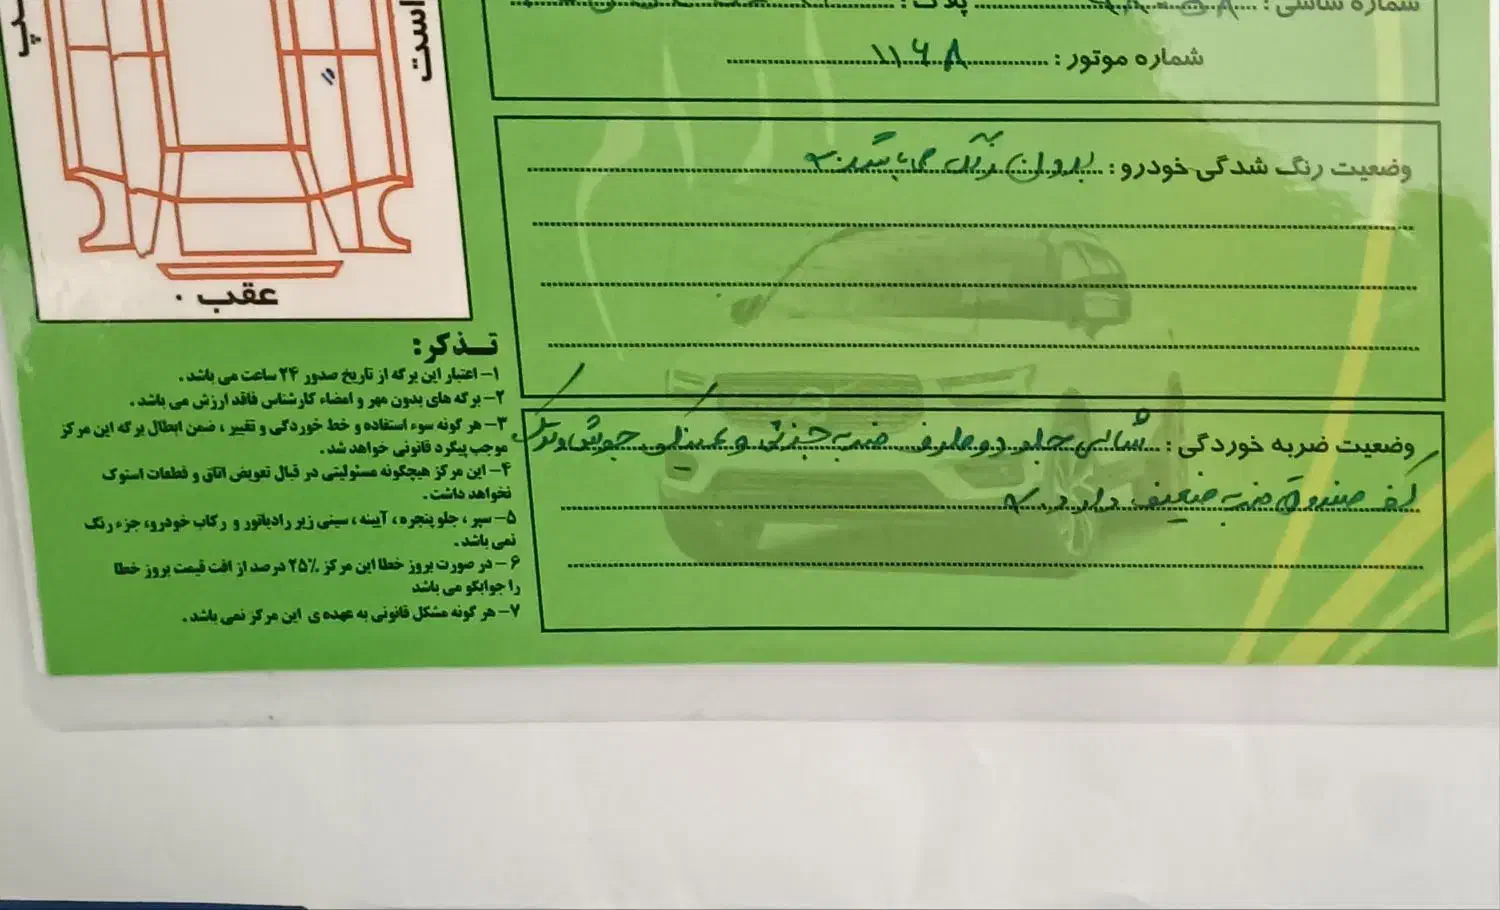 شماره شاسی :
پلاک :
شماره موتور : ۱۱۶۸
راست
چپ
عقب
وضعیت رنگ شدگی خودرو : بدون رنگ می باشد
وضعیت ضربه خوردگی : شاسی جلو دو طرف ضربه جزئی و
کف صندوق ضربه ضعیف دارد
تذکر:
۱- اعتبار این برگه از تاریخ صدور ۲۴ ساعت می باشد .
۲- برگه های بدون مهر و امضاء کارشناس فاقد ارزش می باشد .
۳- هر گونه سوء استفاده و خط خوردگی و تغییر ، ضمن ابطال برگه این مرکز
موجب پیگرد قانونی خواهد شد .
۴- این مرکز هیچگونه مسئولیتی در قبال تعویض اتاق و قطعات استوک
نخواهد داشت .
۵- سپر ، جلو پنجره ، آیینه ، سینی زیر رادیاتور و رکاب خودرو، جزء رنگ
نمی باشد .
۶- در صورت بروز خطا این مرکز ۲۵٪ درصد از افت قیمت بروز خطا
را جوابگو می باشد
۷- هر گونه مشکل قانونی به عهده ی این مرکز نمی باشد .